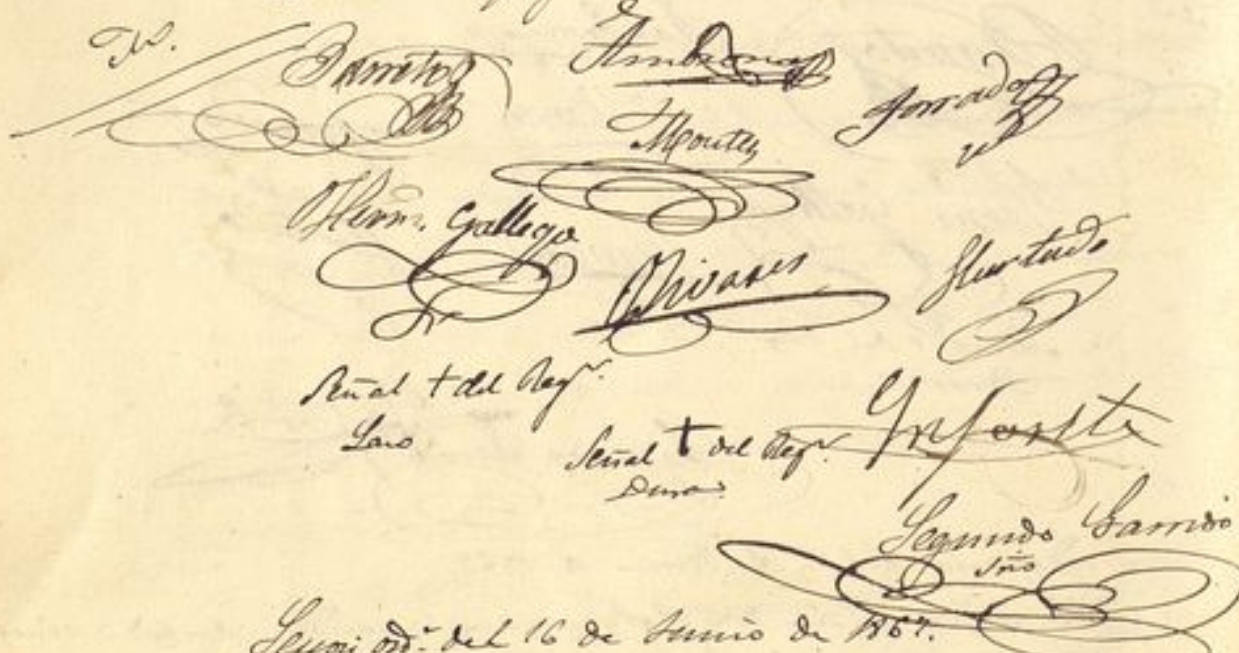 Barreto
Ambrona
Torrado
Montes
Herm. Gallego
Olivares
Hurtado
Señal + del Reg.r
Laso
Señal + del Reg.r
Duran
Infante
Segundo Garrido
Srio
Sesion ord.a del 16 de Junio de 1867.